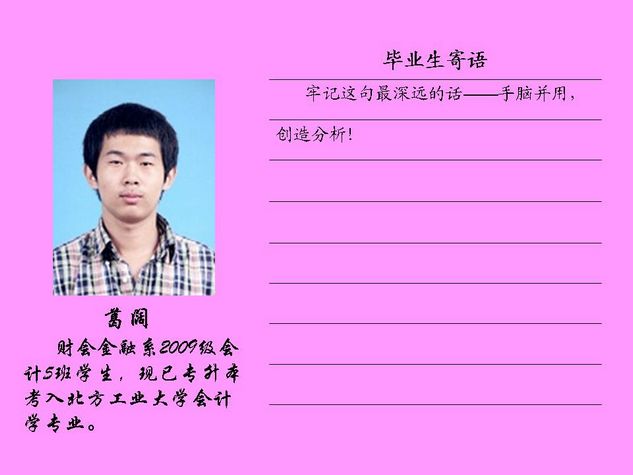 毕业生寄语
牢记这句最深远的话——手脑并用，
创造分析！
葛阔
财会金融系2009级会
计5班学生，现已专升本
考入北方工业大学会计
学专业。